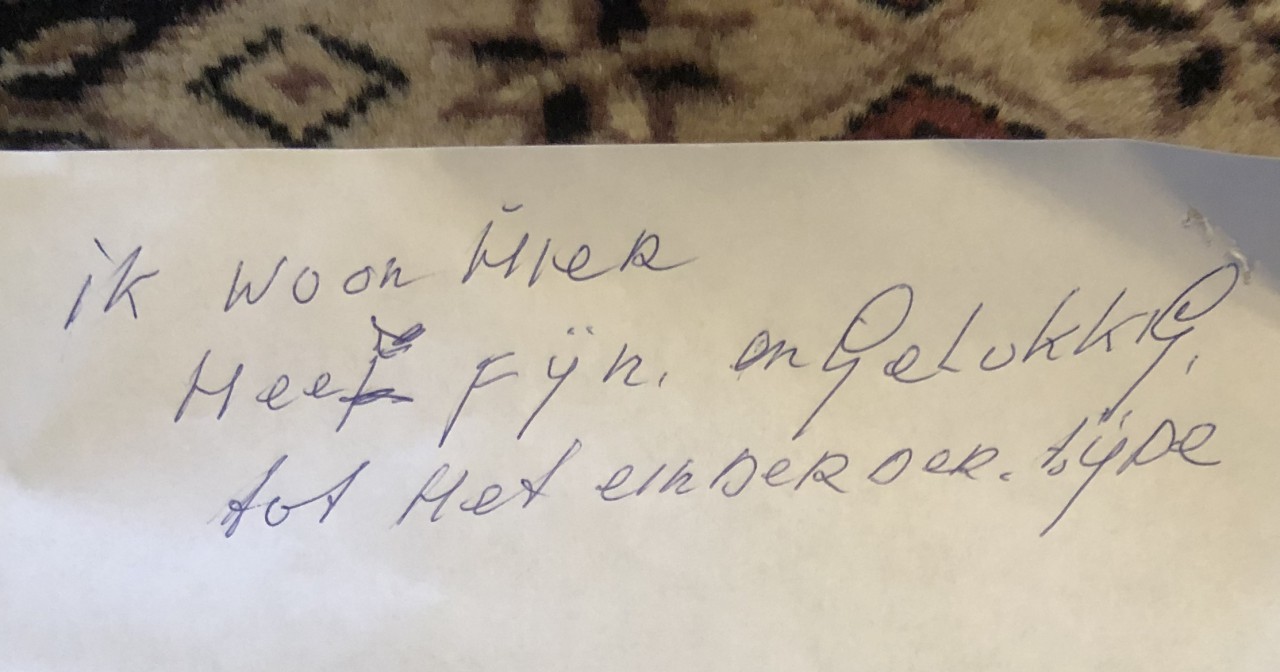 ik woon Hier
Heel fijn. en Gelukkig,
tot Het einder der. tijde